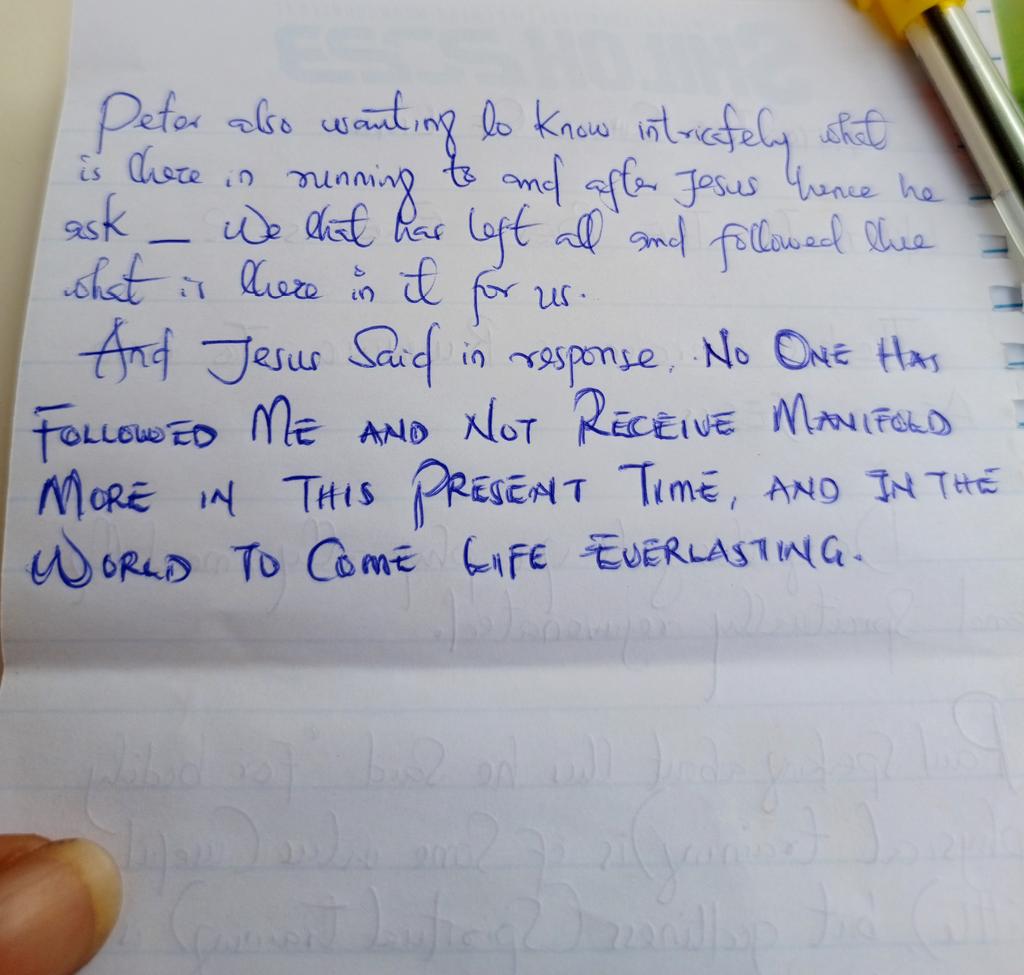 Peter also wanting to know intricately what
is there in running to and after Jesus hence he
ask — We that has left all and followed thee
what is there in it for us.
And Jesus Said in response, NO ONE HAS
FOLLOWED ME AND NOT RECEIVE MANIFOLD
MORE IN THIS PRESENT TIME, AND IN THE
WORLD TO COME LIFE EVERLASTING.